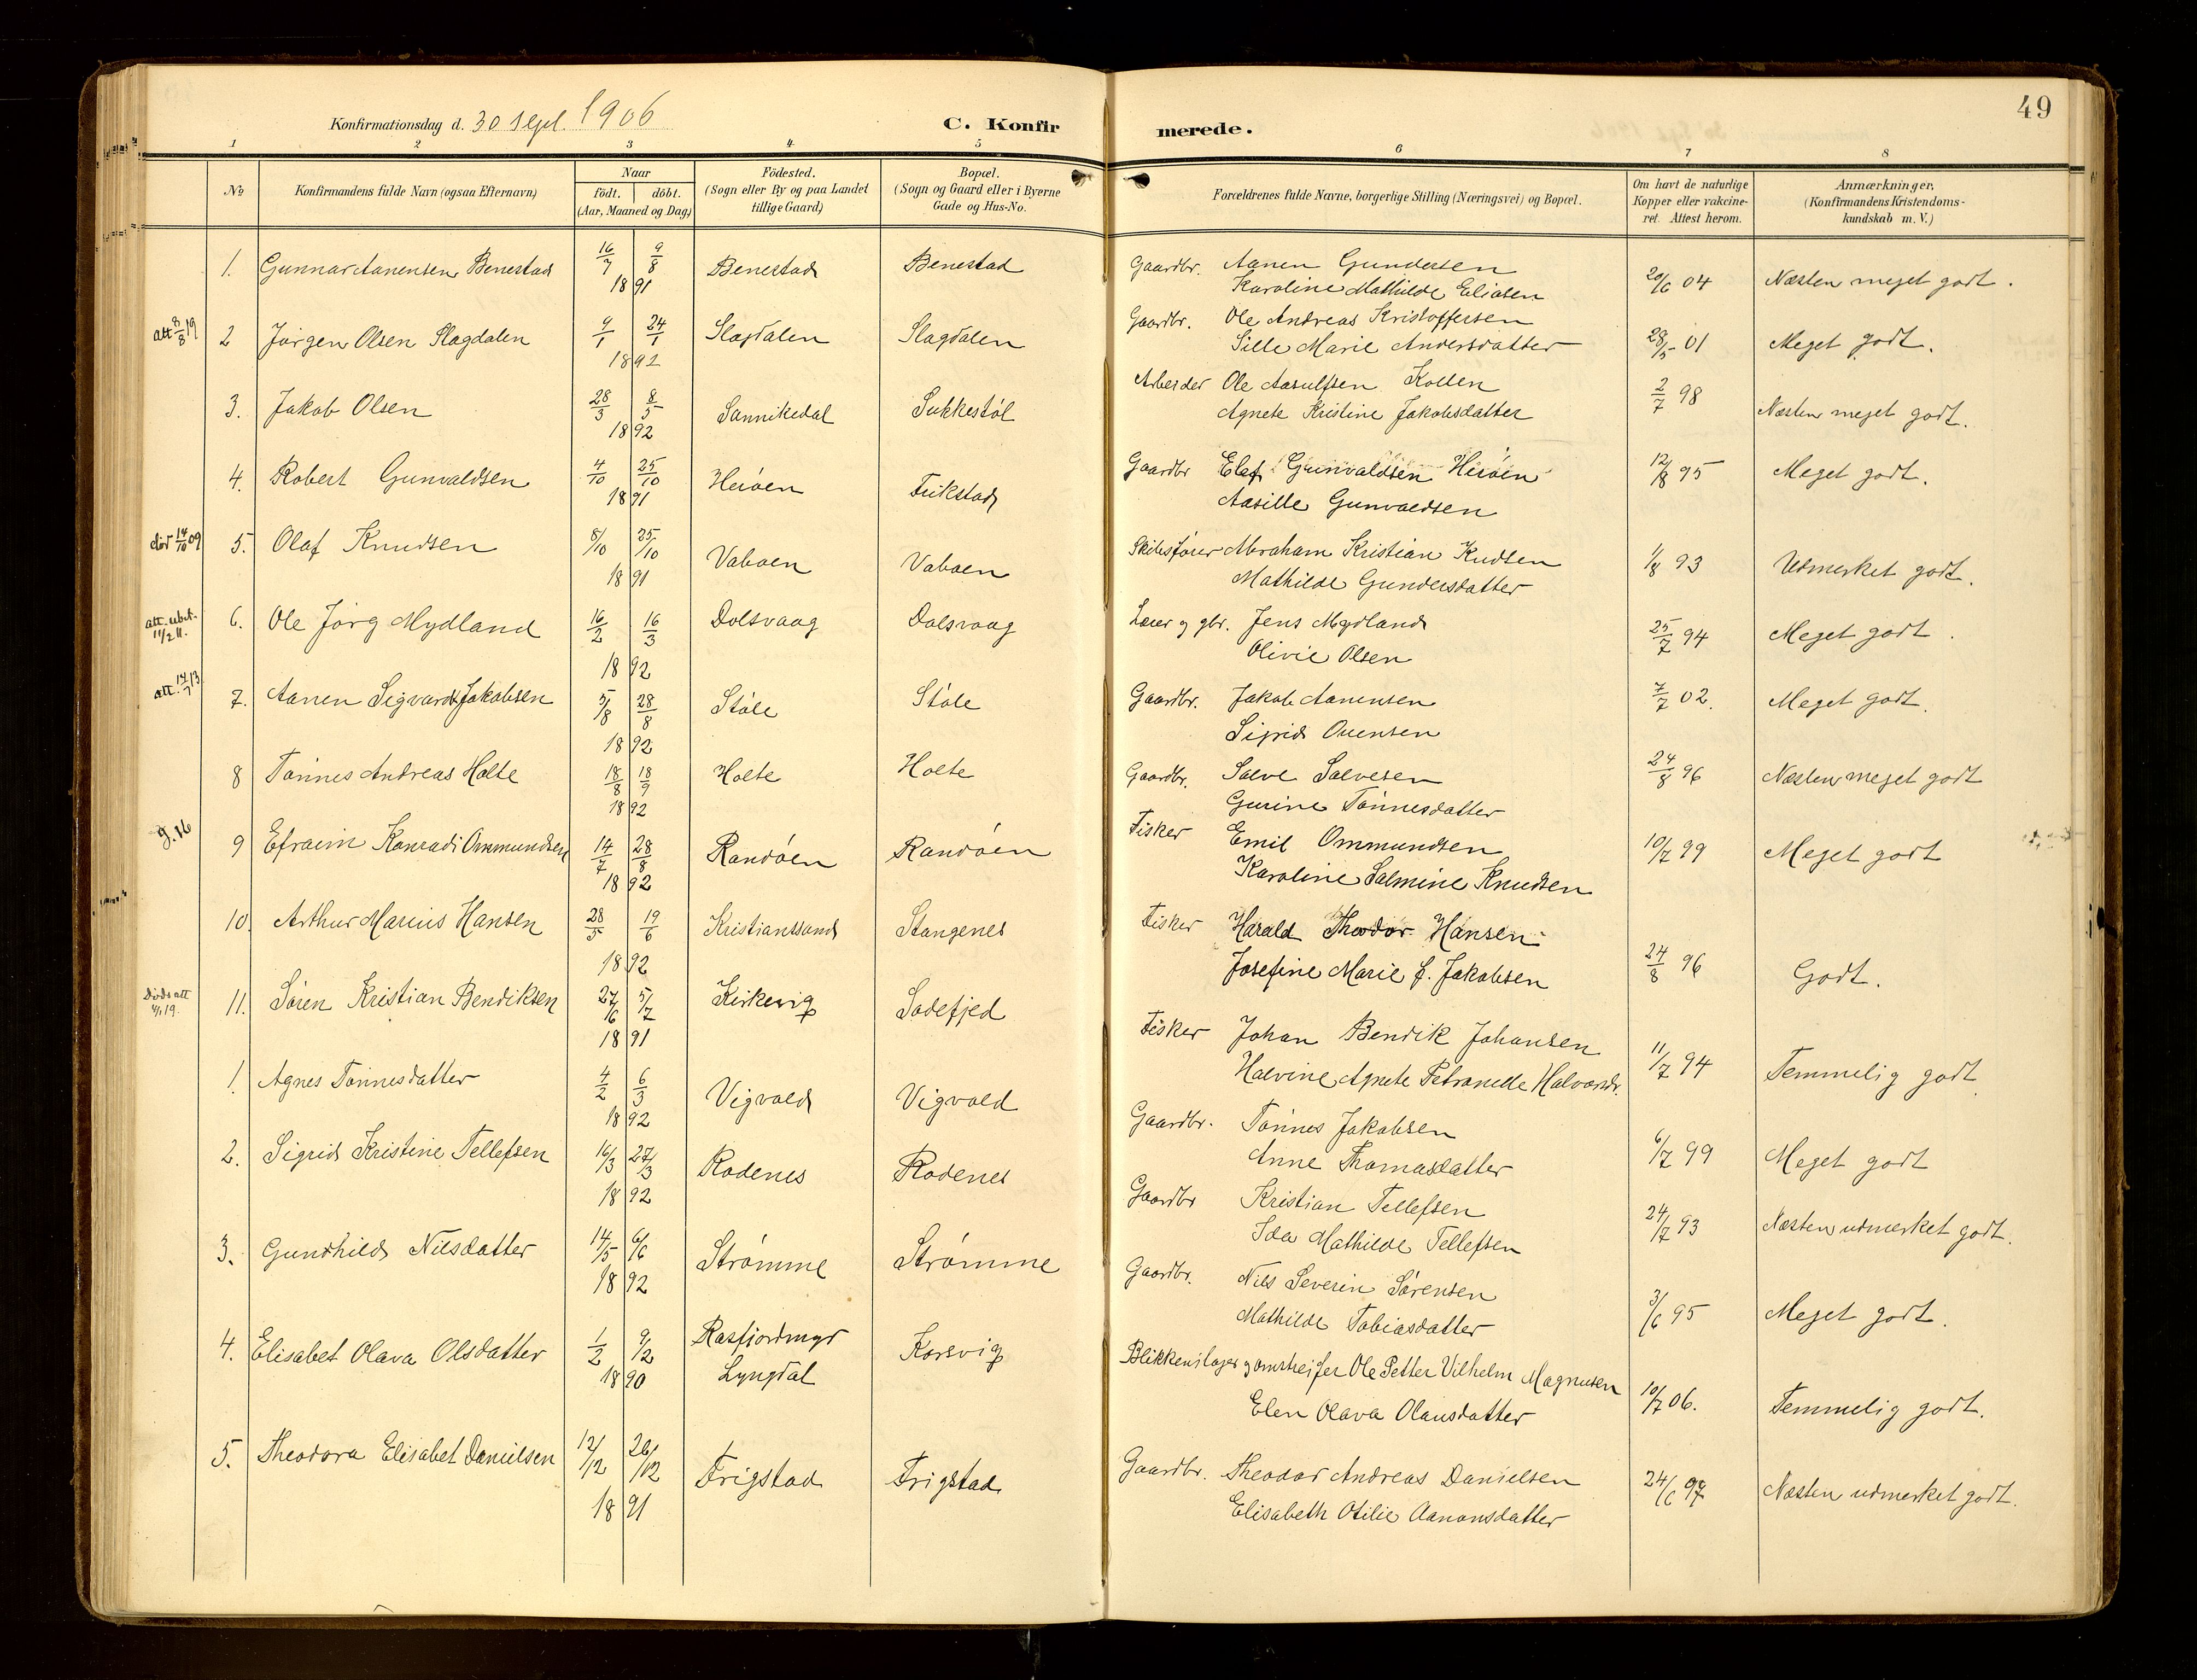 49
Konfirmationsdag d. 30 Sept. 1906
C. Konfirmerede.
1 2 3 4 5 6 7 8
No
Konfirmandens fulde Navn (ogsaa Efternavn)
Naar
födt. döbt.
(Aar, Maaned og Dag)
Födested.
(Sogn eller By og paa Landet
tillige Gaard)
Bopæl.
(Sogn og Gaard eller i Byerne
Gade og Hus-No.
Forældrenes fulde Navne, borgerlige Stilling (Næringsvei) og Bopæl.
Om havt de naturlige
Kopper eller vakcine-
ret. Attest herom.
Anmærkninger.
(Konfirmandens Kristendoms-
kundskab m. V.)
1. Gunnar Aanensen Benestad 16/7 9/8 Benestad Benestad Gaardbr. Aanen Gundersen 20/6 04 Næsten meget godt.
1891 Karoline Mathilde Eliasen
att 8/8 19 2 Jørgen Olsen Slagdalen 9/1 24/1 Slagdalen Slagdalen Gaardbr. Ole Andreas Kristoffersen 28/5 01 Meget godt.
1892 Sille Marie Andersdatter
3. Jakob Olsen 28/3 8/5 Sannikedal Sukkestøl Arbeider Ole Aasulfsen Kollen 2/7 98 Næsten meget godt.
1892 Agnete Kristine Jakobsdatter
4. Robert Gunvaldsen 4/10 25/10 Herøen Frikstad Gaardbr Elef Gunvaldsen Herøen 12/8 95 Meget godt.
1891 Aasille Gunvaldsen
død 14/10 09 5. Olaf Knudsen 8/10 25/10 Vaboen Vaboen Skibsfører Abraham Kristian Kudsen 1/8 93 Udmerket godt.
1891 Mathilde Gundersdatter
att. ubet. 11/2 11. 6. Ole Jørg Mydland 16/2 16/3 Dolsvaag Dalsvaag Lærer og gbr. Jens Mydland 25/7 94 Meget godt.
1892 Olivie Olsen
att. 14/7 13 7. Aanen Sigvard Jakobsen 5/8 28/8 Støle Støle Gaardbr. Jakob Aanensen 7/7 02. Meget godt.
1892 Sigrid Ouensen
8 Tønnes Andreas Holte 18/8 18/9 Holte Holte Gaardbr. Salve Salvesen 24/8 96 Næsten meget godt
1892 Gurine Tønnesdatter
g. 16 9 Efraim Konradi Ommundsen 14/7 28/8 Randøen Randøen Fisker Emil Ommundsen 10/7 99 Meget godt
1892 Karoline Salmine Knudsen
10. Arthur Marius Hansen 28/5 19/6 Kristianssand Stangenes Fisker Harald Theodor Hansen 24/8 96 Godt.
1892 Josefine Marie f. Jakobsen
Dødsatt 11. Søren Kristian Bendiksen 27/6 5/7 Kirkevig Sodefjed Fisker Johan Bendik Johansen 11/7 94 Temmelig godt
1891 Halvine Agnete Petranelle Halvorsdr.
1. Agnes Tønnesdatter 4/2 6/3 Vigvold Vigvold Gaardbr. Tønnes Jakobsen 6/7 99 Meget godt
1892 Anne Thomasdatter
2. Sigrid Kristine Tellefsen 16/3 27/3 Rodenes Rodenes Gaardbr Kristian Tellefsen 24/7 93 Næsten udmerket godt.
1892 Ida Mathilde Tellefsen
3. Gundhild Nilsdatter 14/5 6/6 Strømme Strømme Gaardbr. Nils Severin Sørensen 3/6 95 Meget godt.
1892 Mathilde Tobiasdatter
4. Elisabet Olava Olsdatter 1/2 9/2 Rasfjordmyr Korsvig Blikkenslager og omstreifer Ole Petter Vilhelm Magnusen 10/7 06. Temmelig godt.
1890 Lyngdal Elen Olava Olausdatter
5. Theodora Elisabet Danielsen 12/12 26/12 Frigstad Frigstad Gaardbr. Theodor Andreas Danielsen 24/6 97 Næsten udmerket godt.
1891 Elisabeth Otilie Aanonsdatter